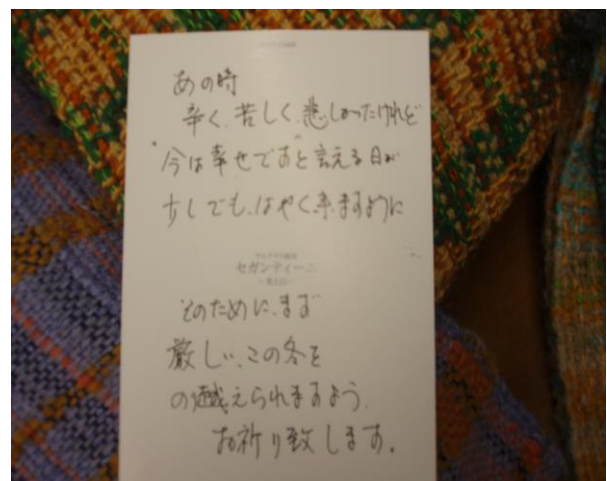 あの時
辛く、苦しく、悲しかったけれど
"今は幸せです"と言える日が
少しでも、はやく、来ますように
アルプスの画家
セガンティーニ
そのために、まず
厳しい、この冬を
の越えられますよう、
お祈り致します。